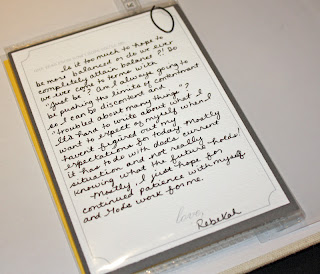 Is it too much to hope to
be more balanced or do we ever
completely attain balance?! Do
we ever come to terms with
"just be"? Am I always going to
be pushing the limits of contentment
so I can be discontent and
"troubled about many things"?
It's hard to write about what I
want to expect of myself when I
havent figured out my mostly
expectations for today.
it has to do with dads current
situation and not really
knowing what the future holds!
Mostly, I just hope for
continued patience with myself
and Gods work for me.
love,
Rebekah